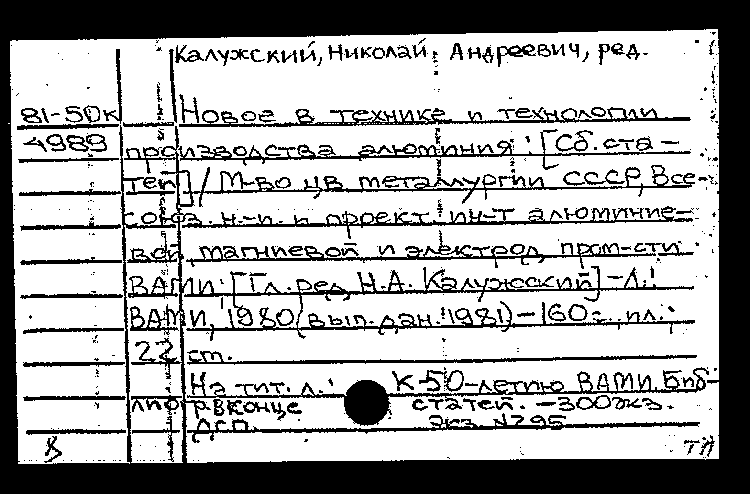 Калужский, Николай Андреевич, ред.
81-50к Новое в технике и технологии
4989 производства алюминия: [Сб. ста-
тей] / М-во цв металлургии СССР, Все-
союз. н.-и. и проект. ин-т алюминие-
вой, магниевой и электрод. пром-сти
ВАМИ; [Гл. ред. Н.А. Калужский] - Л.:
ВАМИ, 1980 (вып. дан. 1981) - 160 с., ил.;
22 ст.
На тит. л.: К 50-летию ВАМИ. Биб-
лиогр в конце статей. - 300 экз.
ДСП. Экз. №295
В